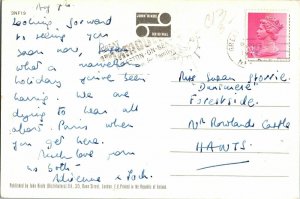 2NF19
Aug 86
Looking forward
to seeing you
soon now,
what a marvellous
holiday you've been
having. We are
dying to hear all
about Paris when
you get here.
Much love from
us both
Adrienne & Jack.
JOHN HINDE
Miss Susan Storrie
"Dunimere"
Forestside
Nr Rowlands Castle
HANTS.
Published by John Hinde (Distributors) Ltd., London, E.C. Printed in the Republic of Ireland